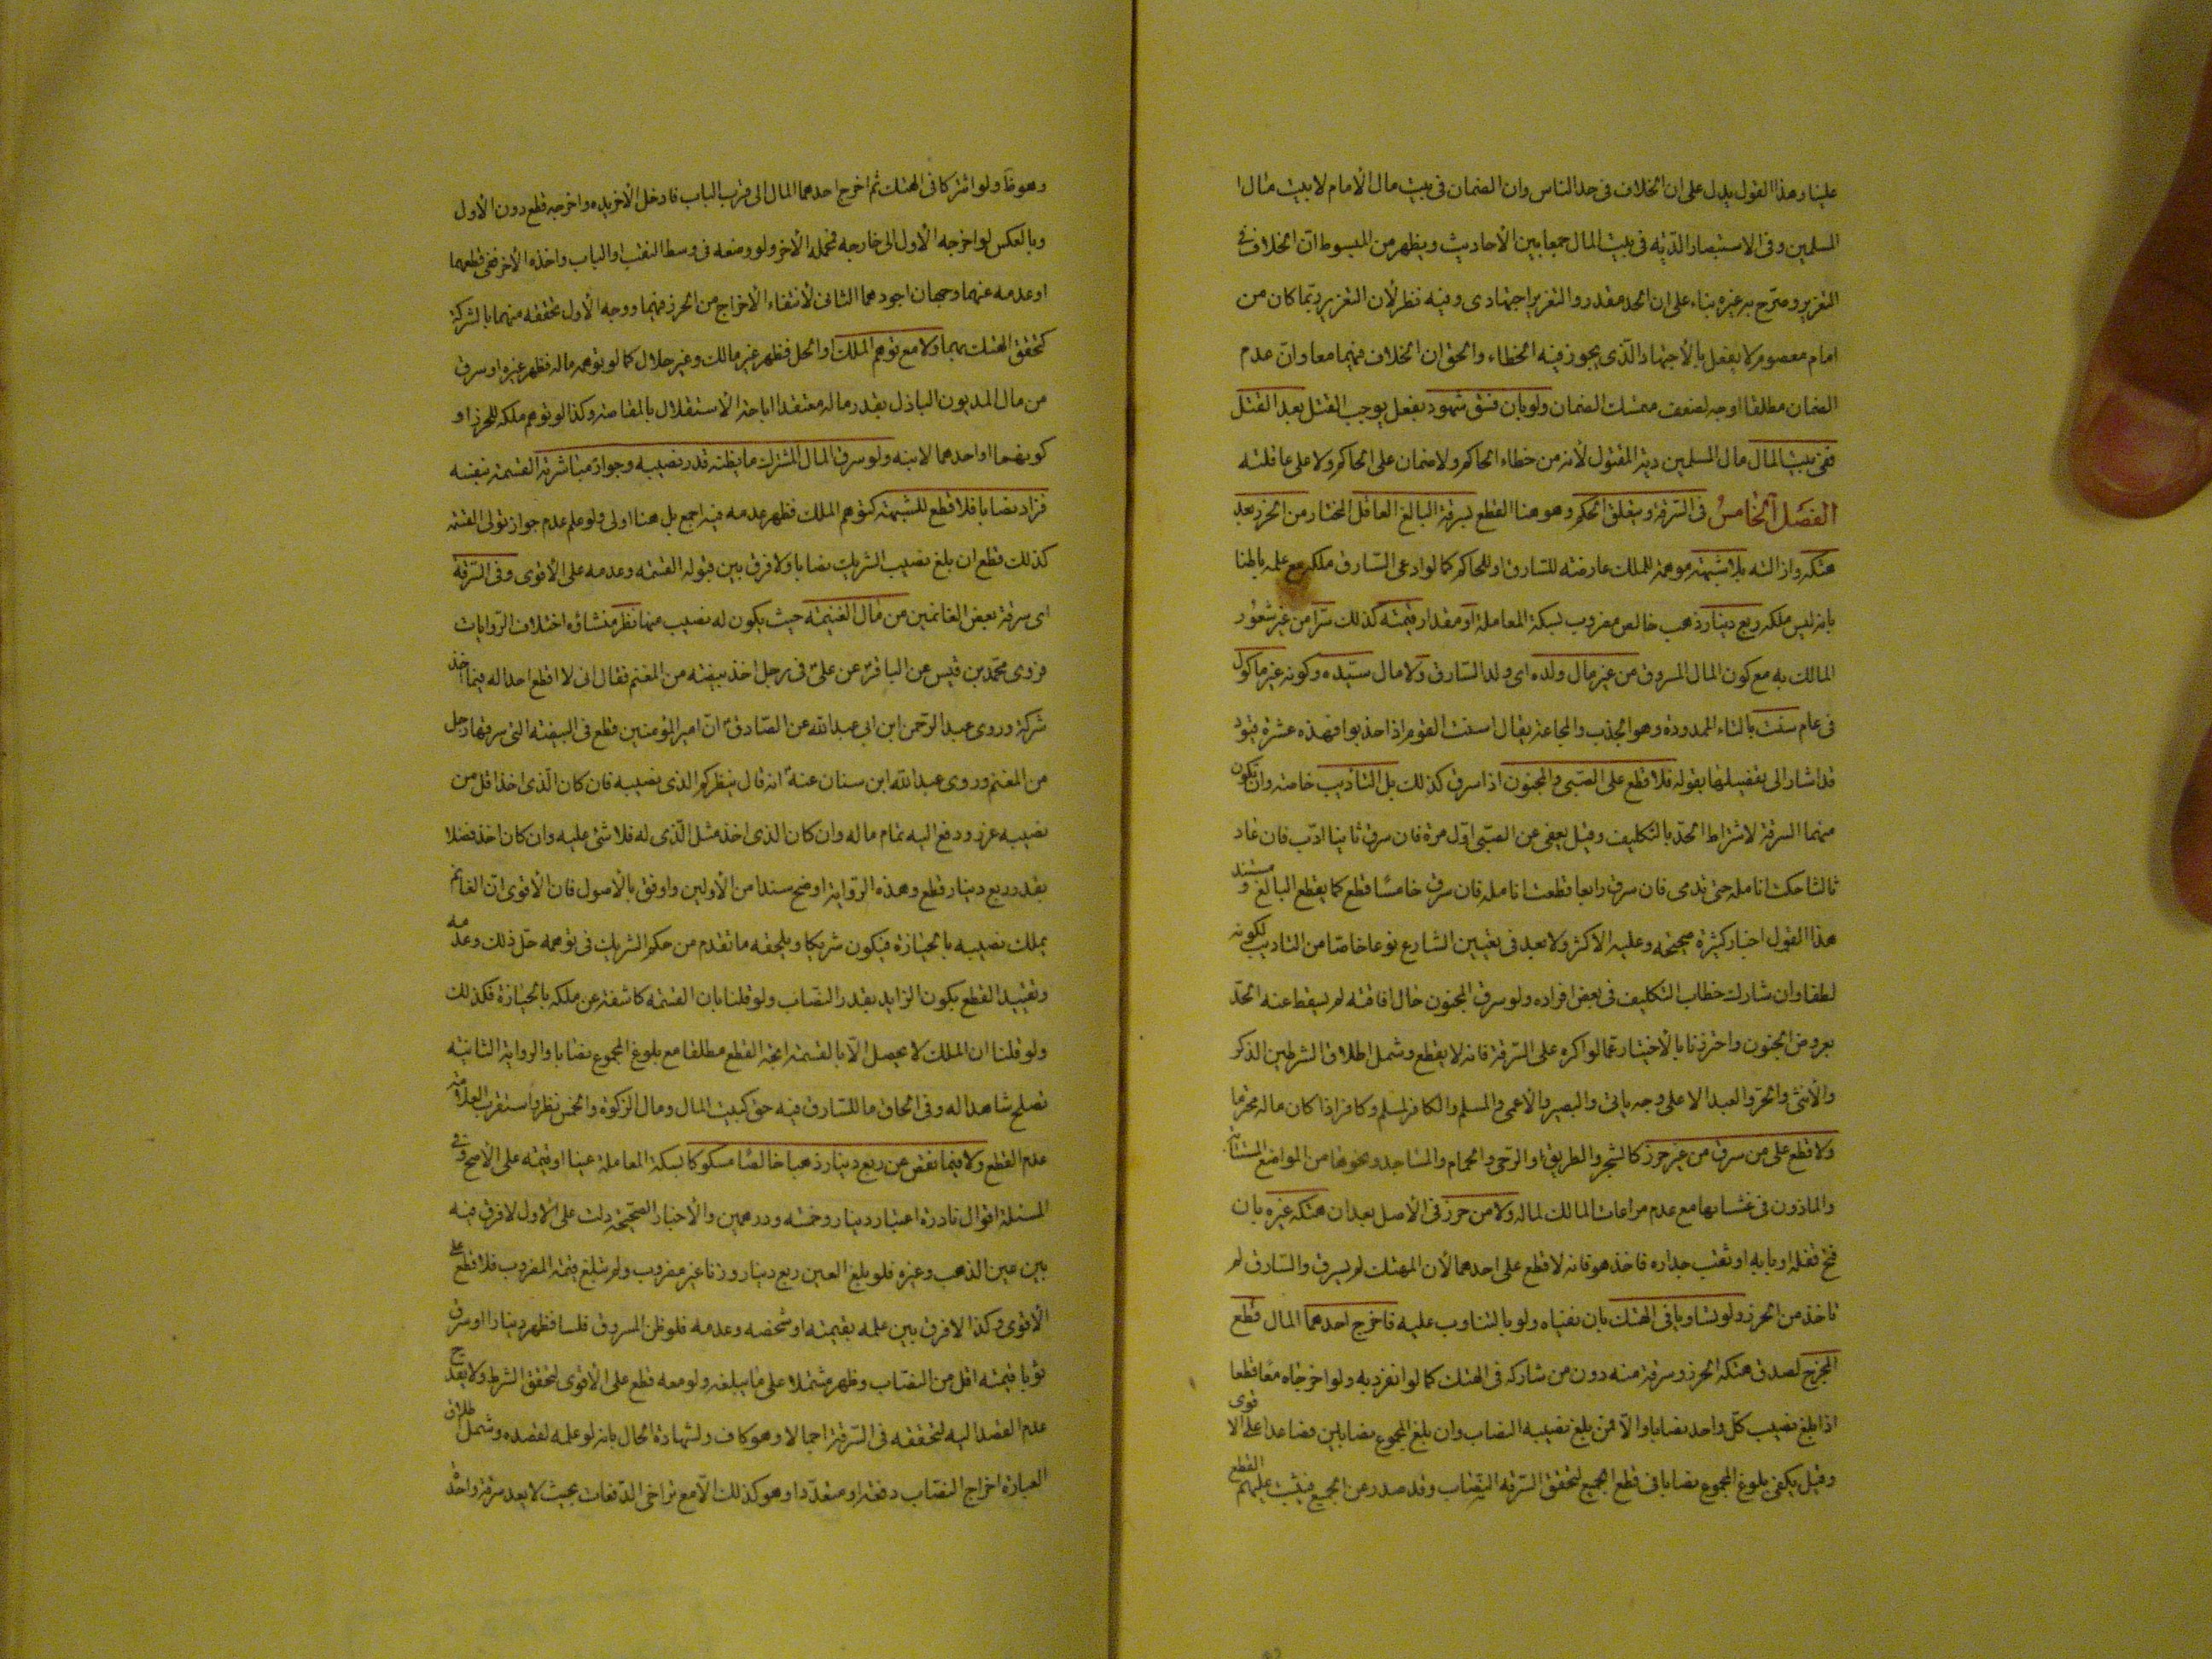 علينا وهذا القول يدل على ان الخلاف في حد الناس وان الضمان في بيت مال الامام لا بيت مال ا
المسلمين وفي الاستبصار الدّية في بيت المال جمعا بين الأحاديث ويظهر من المبسوط انّ الخلاف في
التعزير وصرّح به غيره بناء على ان الحد مقدر والتعزير اجتهادى وفيه نظر لأن التعزير ربّما كان من
امام معصوم لا يفعل بالأجتهاد الّذى يجوز فيه الخطاء والحق ان الخلاف فيهما معا وانّ عدم
الضمان مطلقا اوجه لضعف متمسّك الضمان ولو بان فسق شهود بفعل يوجب القتل بعد القتل
ففى بيت المال مال المسلمين دية المقتول لأنه من خطاء الحاكم ولا ضمان على الحاكم ولا على عاقلته
الفصل الخامس فى السّرقة ويتعلق الحكم وهو هنا القطع بسرقة البالغ العاقل المختار من الحرز بعد
هتكه وازالته بلا شبهة موهمة للملك عارضة للسّارق او للحاكم كما لو ادعى السّارق ملكه مع علمه باطنا
بانه ليس ملكه ربع دينار ذهب خالص مضروب بسكة المعاملة او مقدار قيمته كذلك سرّا من غير شعور
المالك به مع كون المال المسروق من غير مال ولده اى ولد السّارق ولا مال سيّده وكونه غير مأكول
فى عام سنت بالتاء الممدودة وهو الجذب والمجاعة يقال اسنت القوم اذا اجذبوا فهذه عشرة قيود
قد اشار الى تفصيلها بقوله فلا قطع على الصّبى والمجنون اذا سرق كذلك بل التأديب خاصة وان تكون
منهما السرقة لاشتراط الحدّ بالتكليف وقيل يعفى عن الصّبى اوّل مرة فان سرق ثانيا ادّب فان عاد
ثالثا حكت انامله حتى تدمى فان سرق رابعا قطعت انامله فان سرق خامسًا قطع كما يقطع البالغ و مستند
هذا القول اخبار كثيرة صحيحة وعليه الأكثر ولا بعد فى تعيين الشارع نوعا خاصّا من التاديب لكونه
لطفا وان شارك خطاب التكليف فى بعض افراده ولو سرق المجنون حال افاقته لم يسقط عنه الحدّ
بعروض الجنون واحترزنا بالأختيار عمّا لو اكره على السّرقة فانه لا يقطع وشمل اطلاق الشرطين الذكر
والأنثى والحرّ والعبد الا على وجه ياتى والبصير والأعمى والمسلم والكافر لمسلم وكافر اذا كان ماله محترما
ولا قطع على من سرق من غير حرز كالشجر والطريق والرّحى والحمام والمساجد ونحوها من المواضع المنتابة
والماذون فى غشيانها مع عدم مراعات المالك لماله ولا من حرز فى الأصل بعد ان هتكه غيره بان
فتح قفله او بابه او نقب جداره فاخذ هو فانه لا قطع على احدهما لأن المهتك لم يسرق والسّارق لم
ناخذ من الحرز ولو تشاويا فى الهتك بان نقباه ولو بالتناوب عليه فاخرج احدهما المال قطع
المخرج لصدق هتكه الحرز وسرقته منه دون من شاركه فى الهتك كما لو انفرد به ولو اخرجاه معًا قطعا
اذا بلغ نصيب كلّ واحد نصابا والّا فمن بلغ نصيبه النصاب وان بلغ المجموع نصابين فصاعدا على الاقوى
وقيل يكفى بلوغ المجموع نصابا فى قطع الجميع لتحقق السّرقة النّصاب وقد صدر عن الجميع فيثبت عليهم القطع
وهو ظ ولو اشتركا فى الهتك ثم اخرج احدهما المال الى قرب الباب فادخل الأخر يده واخرجه قطع دون الأول
وبالعكس لو اخرجه الأول الى خارجه فحمله الأخر ولو وضعه فى وسط النقب او الباب واخذه الأخر ففى قطعهما
او عدمه عنهما وجهان اجودهما الثانى لأنتفاء الأخراج من الحرز فيهما ووجه الأول تحققه منهما بالشركة
كتحقق الهتك بهما ولا مع توهم الملك او الحل فظهر غير مالك وغير حلال كما لو توهمه ماله فظهر غيره او سرق
من مال المديون الباذل بقدر ماله معتقدا اباحة الأستقلال بالمقاصة وكذا لو توهم ملكه للحرز او
كونهما او احدهما لابنه ولو سرق المال المشترك ما يظنه قدر نصيبه وجواز مباشرته القسمة بنفسه
فزاد نصابا فلا قطع للشبهة كتوهم الملك فظهر عدمه فيه اجمع بل هنا اولى ولو علم عدم جواز تولى القسمة
كذلك قطع ان بلغ نصيب الشريك نصابا ولا فرق بين قبوله القسمة وعدمه على الأقوى وفى السّرقة
اى سرقة بعض الغانمين من مال الغنيمة حيث يكون له نصيب منها نظر منشاؤه اختلاف الرّوايات
فروى محمّد بن قيس عن الباقر عن علىّ فى رجل اخذ بيضة من المغنم فقال انى لا اقطع احدا له فيما اخذ
شركة وروى عبد الرّحمن ابن ابى عبد الله عن الصّادق انّ امير المؤمنين قطع فى البيضة التى سرقها رجل
من المغنم وروى عبد الله ابن سنان عنه انه قال ينظركم الذى نصيبه فان كان الّذى اخذ اقل من
نصيبه عزر ودفع اليه تمام ماله وان كان الذى اخذ مثل الّذى له فلا شئ عليه وان كان اخذ فضلا
بقدر ربع دينار قطع وهذه الرّواية اوضح سندا من الأولين واوفق بالأصول فان الأقوى انّ الغانم
يملك نصيبه بالحيازة فيكون شريكا ويلحقه ما تقدم من حكم الشريك فى توهمه حلّ ذلك وعدمه
وتقييد القطع بكون الزايد بقدر النصاب ولو قلنا بان القسمة كاشفة عن ملكه بالحيازة فكذلك
ولو قلنا ان الملك لا يحصل الّا بالقسمة اتجه القطع مطلقا مع بلوغ المجموع نصابا والرواية الثانية
تصلح شاهدا له وفى الحاق ما للسّارق فيه حق كبيت المال ومال الزكوة والخمس نظر واستقرب العلامة
عدم القطع ولا فيما نقص عن ربع دينار ذهبا خالصًا مسكوكا بسكة المعاملة عينا او قيمة على الأصح وفى
المسئلة اقوال نادرة اعتبار دينار وخمسه ودرهمين والأخبار الصّحيحة دلت على الأول لا فرق فيه
بين عين الذهب وغيره فلو بلغ العين ربع دينار وزنا غير مضروب ولم تبلغ قيمة المضروب فلا قطع على
الأقوى وكذا لا فرق بين علمه بقيمته او شخصه وعدمه فلو ظن المسروق فلسا فظهر دينارا او سرق
ثوبا قيمته اقل من النصاب وظهر مشتملا على ما يبلغه ولو معه قطع على الأقوى لتحقق الشرط ولا يقدح
عدم القصد اليه لتحققه فى السّرقة اجمالا وهو كاف ولشهادة الحال بانه لو علمه لقصده وشمل اطلاق
العبارة اخراج النصاب دفعة او متعدّدا وهو كذلك الّا مع تراخى الدّفعات بحيث لا يعد سرقة واحدة